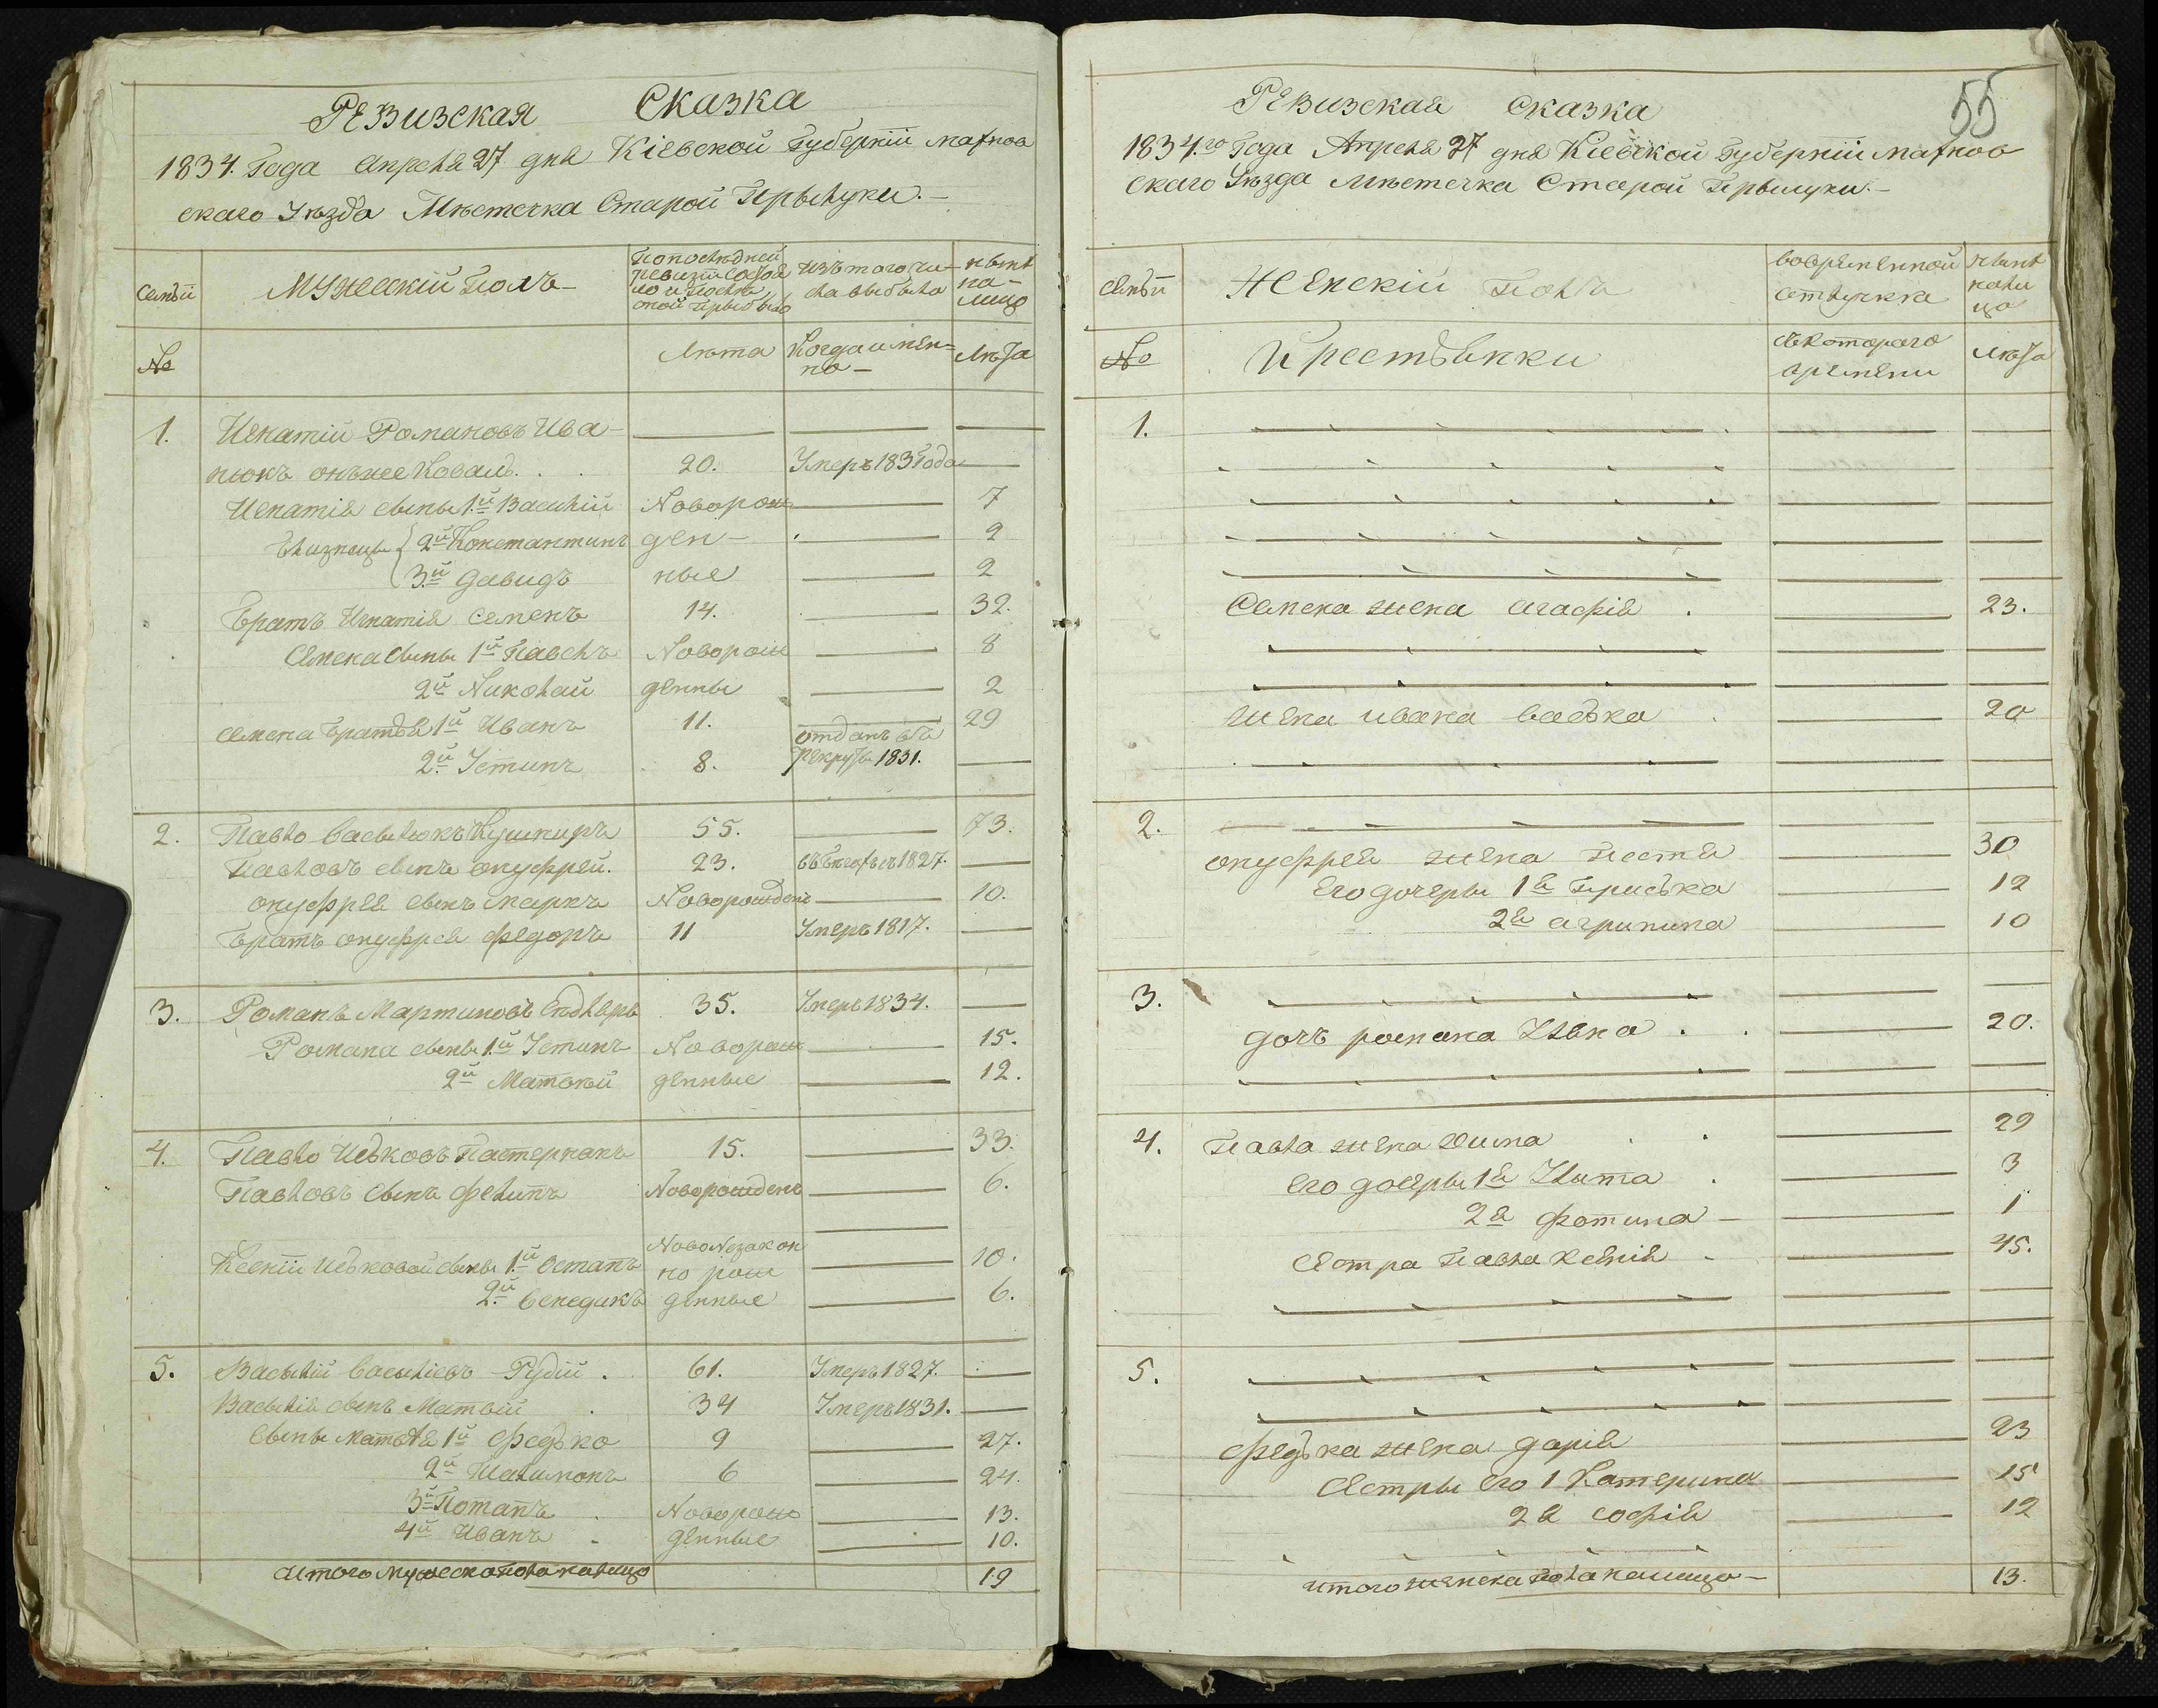 Ревизская Сказка
1834. Года Апреля 27 дня Кіевской Губерніи Махнов
скаго Уѣзда Мѣстечка Старой Прылуки.–
Семьи
Мужескій Полъ–
По последней
ревизіи состоя
ло и после
оной прыбыло
Изъ того чи–
сла выбыло
ныне
на–
лицо
№
Лета
Когда имен=
но–
Лета
1. Игнатій Романовъ Ива–
нюкъ онъже Коваль. . . 20. Умеръ 183 Года
Игнатія сыны 1й Василій Новорож 7
Близнецы 2й Константинъ ден– 2
3й Давидъ ные 2
Братъ Игнатія Семенъ 14. 32.
Семена сыны 1й Павелъ Новорож 8
2й Николай денны 2
Семена Братья 1й Иванъ 11. 29
2й Устинъ 8. отданъ въ
рекруты 1831.
2. Павло Василюкъ Кушниръ 55. 73.
Павловъ сынъ Онуфрей. 23. въ бегахъ съ 1827.
Онуфрея сынъ Маркъ Новорожденъ 10.
Братъ Онуфрея Федоръ 11 Умеръ 1817.
3. Романъ Мартиновъ 35. Умеръ 1834.
Романа сыны 1й Устинъ Новорож 15.
2й Матвѣй денные 12.
4. Павло Ицьковъ Пастернакъ 15. 33.
Павловъ сынъ Филипъ Новорожденъ 6.
Ксеніи Ицьковой сыны 1й Остапъ Новонезакон
но рож 10.
2й Бенедикъ денные 6.
5. Василій Васильевъ Рудій . 61. Умеръ 1827.
Василія сынъ Матвій . 34 Умеръ 1831.
Сыны Матвѣя 1й Федько 9 27.
2й Палимонъ 6 24.
3й Потапъ . Новорож 13.
4й Иванъ . денные 10.
Итого Мужеска пола налицо 19
55
Ревизская Сказка
1834.го Года Апреля 27 дня Кіевской Губерніи Махнов
скаго Уѣзда Мѣстечка Старой Прылуки.–
Семьи
Женскій Полъ
вовременной
отлучке
Ныне
нали
цо
№
Крестьянки
съ котораго
времени
Лета
1.
Семена жена Агафія . 23.
Жена Ивана Васька . 20
2.
Онуфрея жена Настя 30
Его дочеры 1я Приська 12
2я Агрипина 10
3.
Дочъ Романа Уляна . . 20.
4. Павла жена Юлма . . 29
Его дочеры 1я Улита . 3
2я Фотина – 1
Сестра Павла Ксенія – 45.
5.
Федька жена Дарія 23
Сестры его 1 Катерина 15
2я Софія 12
Итого женска пола налицо – 13.